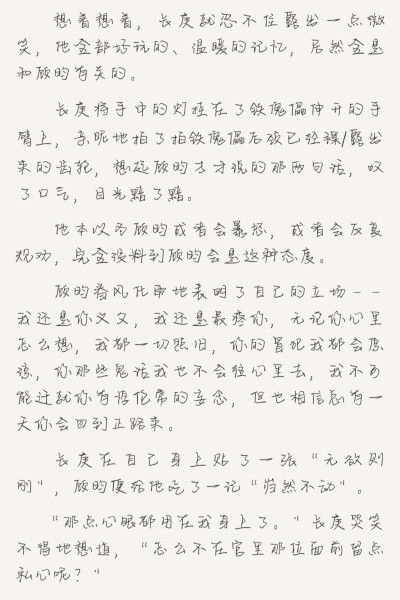 想着想着，长庚就忍不住露出一点微
笑，他全部好玩的、温暖的记忆，居然全是
和顾昀有关的。
长庚将手中的灯挂在了铁傀儡伸开的手
臂上，亲昵地拍了拍铁傀儡后颈已经裸/露出
来的齿轮，想起顾昀方才说的那两句话，叹
了口气，目光黯了黯。
他本以为顾昀或者会暴怒，或者会反复
规劝，完全没料到顾昀会是这种态度。
顾昀春风化雨地表明了自己的立场--
我还是你义父，我还是最疼你，无论你心里
怎么想，我都一切照旧，你的冒犯我都会原
谅，你那些鬼话我也不会往心里去，我不可
能迁就你有悖伦常的妄念，但也相信总有一
天你会回到正路来。
长庚在自己身上贴了一张“无欲则
刚”，顾昀便给他吃了一记“岿然不动”。
“那点心眼都用在我身上了。”长庚哭笑
不得地想道，“怎么不在宫里那位面前留点
私心呢？”